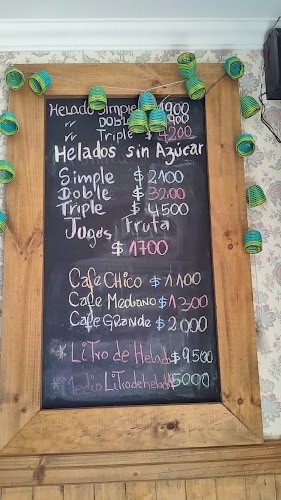 Helado Simple $1900
" Doble 
" Triple $4200
Helados sin Azúcar
Simple $2100
Doble $3200
Triple $4500
Jugos Fruta
$1700
Cafe Chico $1100
Cafe Mediano $1300
Cafe Grande $2000
* LiTro de Helado $9500
* Medio LiTro de helado $5000